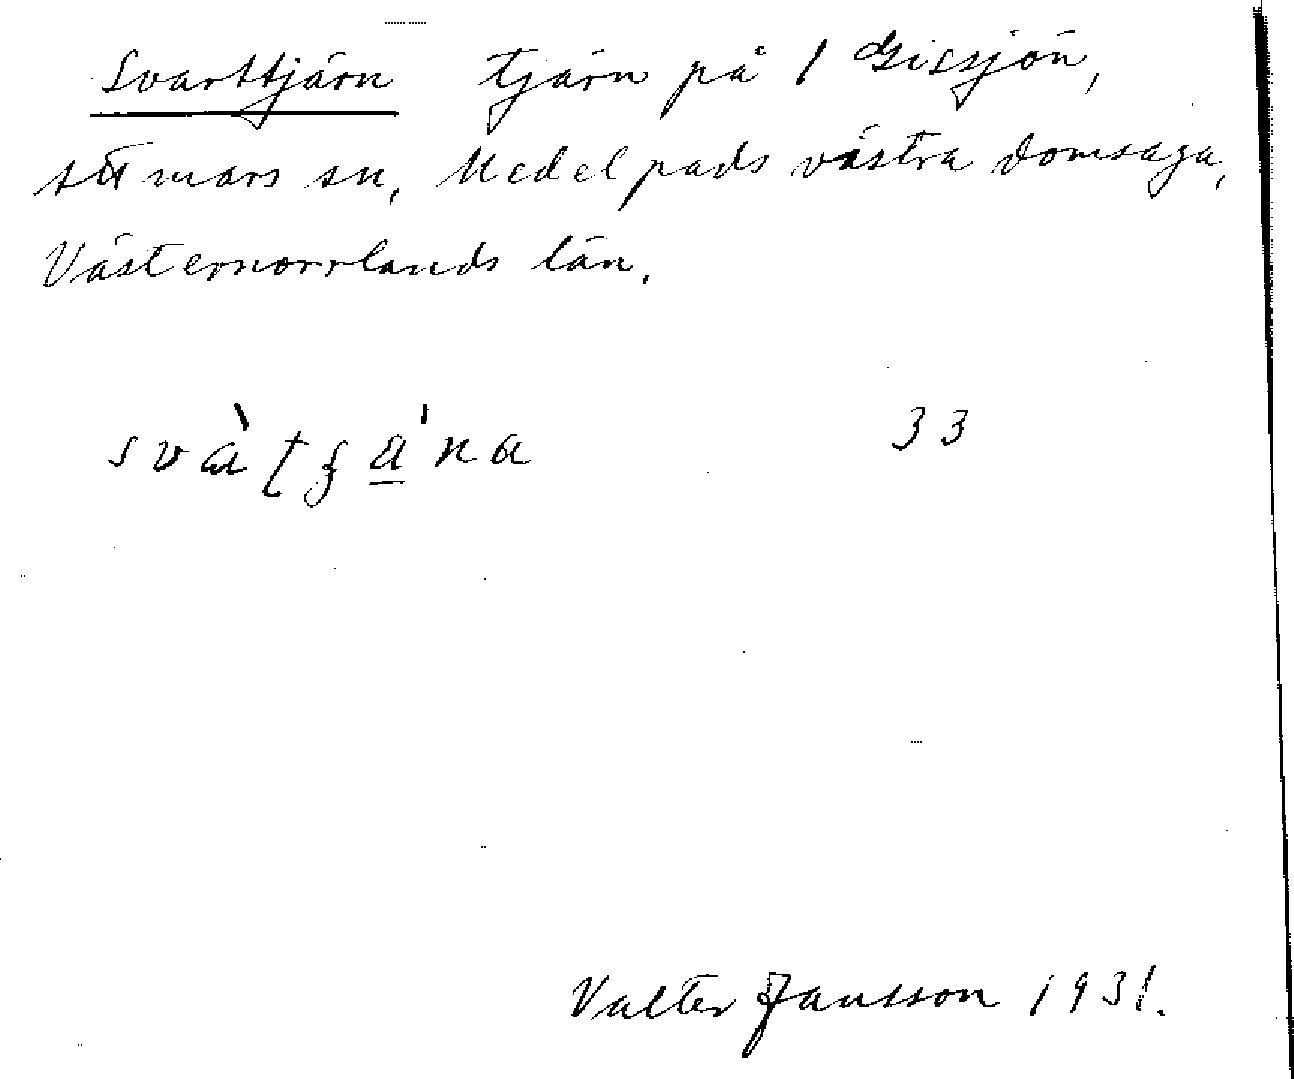 Svarttjärn tjärn på 1 Gissjön,
Attmars sn, Medelpads västra domsaga,
Västernorrlands län.
33
Valter Jansson 1931.